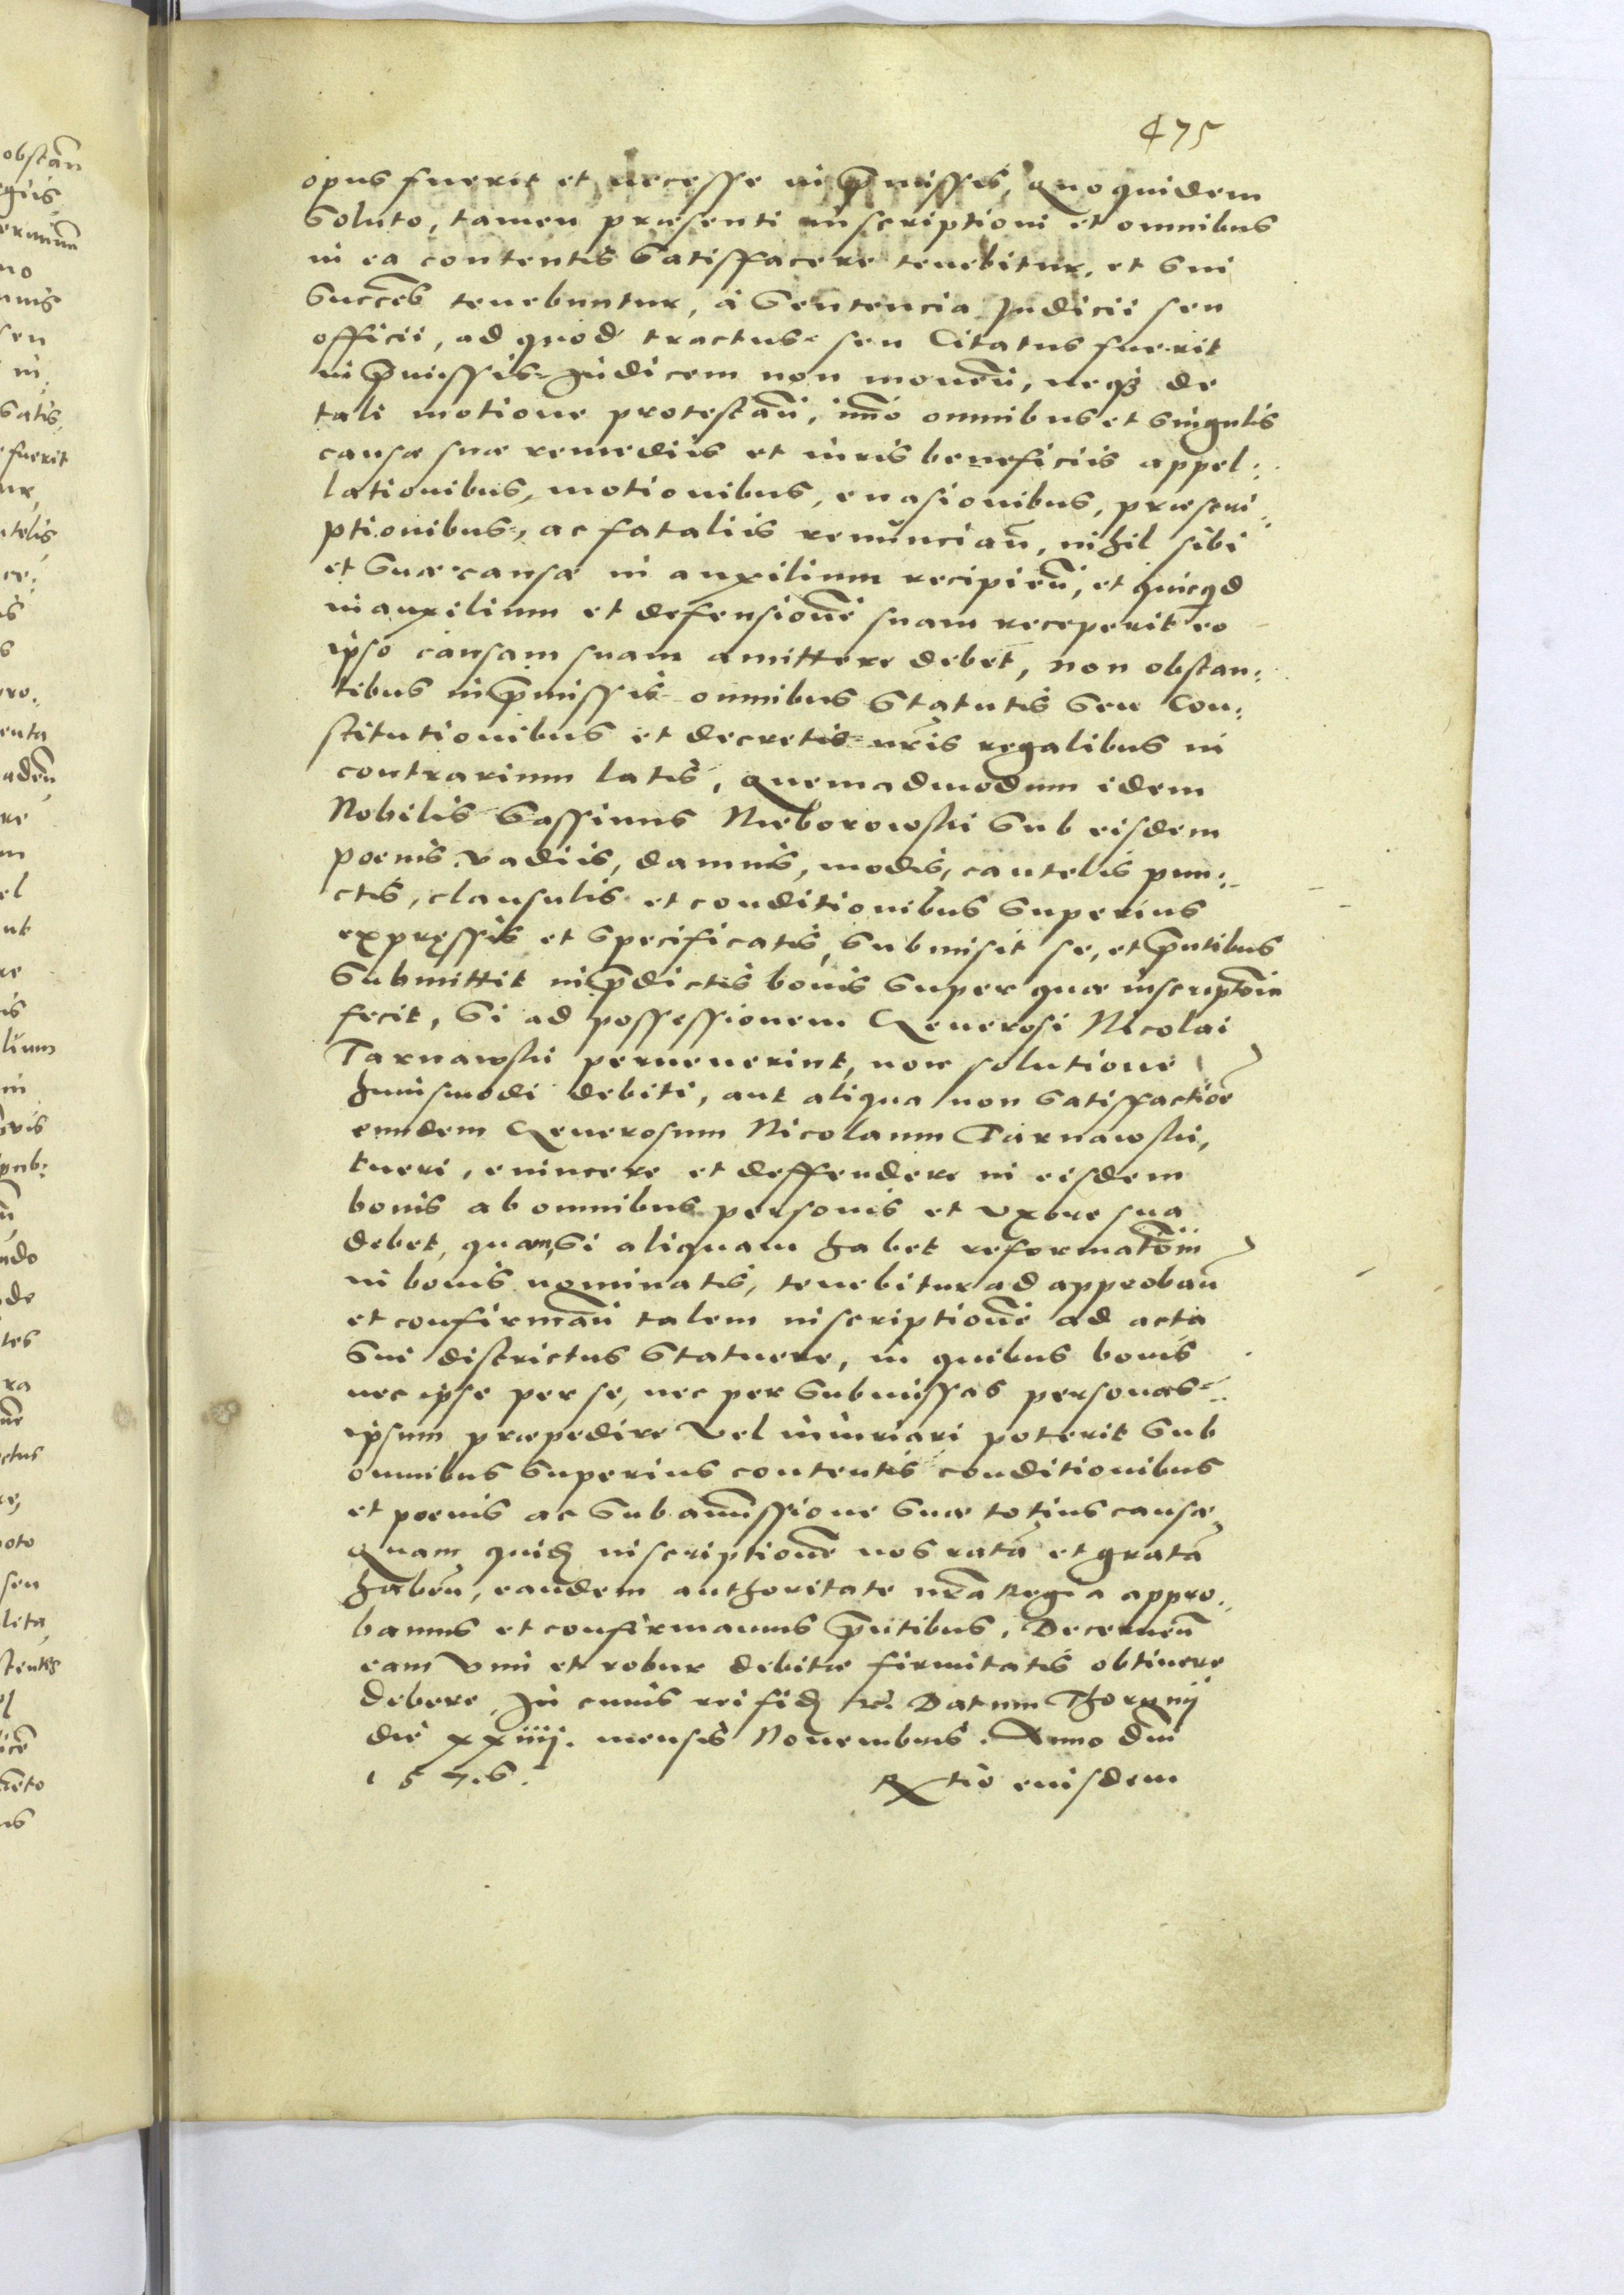 475
opus fuerit et necesse in p̄missis, quo quidem
soluto, tamen præsenti inscriptioni et omnibus
in ea contentis satisffacere tenebitur, et sui
succēs tenebuntur, à sentencia Judicii seu
officii, ad quod tractus seu Citatus fuerit
in p̄missis Judicem non mouen̄, neqꝫ de
tali motione protestan̄, im̄o omnibus et singulis
causæ suæ remediis et iuris beneficiis appel:
lationibus, motionibus, euasionibus, præscri:
ptionibus, ac fataliis renuncian̄, nihil sibi
et suæ causæ in auxilium recipien̄, et quicqd
in auxilium et defensionē suam receperit eo
ipso causam suam amittere debet, non obstan:
tibus in p̄missis omnibus Statutis seu Con:
stitutionibus et decretis nr̄is regalibus in
contrarium latis, quemadmodum idem
Nobilis Cassinus Nieborowski sub eisdem
poenis vadiis, damnis, modis, cautelis pun:
ctis, clausulis et conditionibus superius
expressis et specificatis, submisit se, et p̄ntibus
submittit in p̄dictis bonis super quæ inscriptōin
fecit, si ad possessionem Generosi Nicolai
Tarnawski peruenerint, non solutione
huiusmodi debiti, aut aliqua non satisffactiōe
eundem Generosum Nicolaum Tarnawski,
tueri, euincere et deffendere in eisdem
bonis ab omnibus personis et vxore sua
debet, quam, si aliquam habet reformatōin
in bonis nominatis, tenebitur ad approban̄
et confirman̄ talem inscriptionē ad acta
sui districtus statuere, in quibus bonis
nec ipse per se, nec per submissas personas
ipsum præpedire vel iniuriari poterit sub
omnibus superius contentis conditionibus
et poenis ac sub amissione suæ totius causæ
Quam quid̄ inscriptionē nos ratā et gratā
haben̄, eandem authoritate nr̄a Regia appro:
bamus et confirmamus p̄ntibus. Decernen̄
eam vim et robur debitæ firmitatis obtinere
debere, In cuius rei fid̄ etc. Datum Thorunij
die xxiiij. mensis Nouembris. Anno dnī
1576. Rtio eiusdem